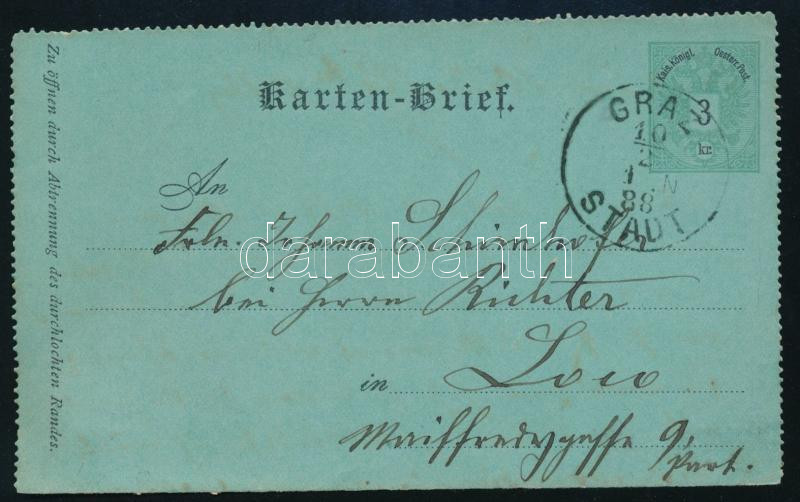 Karten-Brief.
Kais. Königl. Oesterr. Post.
3
kr.
GRAZ
STADT
10
88
Zu öffnen durch Abtrennung des durchlochten Randes.
An
Frln. Johanna
bei Herrn Richter
in Loco
Maiffredygasse 9,
Part.
darabanth